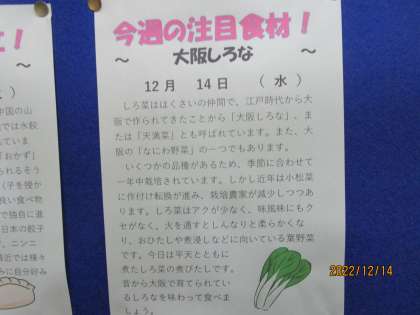 今週の注目食材！
～大阪しろな～
12月 14日 （水）
しろ菜ははくさいの仲間で、江戸時代から大
阪で作られてきたことから「大阪しろな」、ま
たは「天満菜」とも呼ばれています。また、大
阪の「なにわ野菜」の一つでもあります。
いくつかの品種があるため、季節に合わせて
一年中栽培されています。しかし近年は小松菜
に作付け転換が進み、栽培農家が減少しつつあ
ります。しろ菜はアクが少なく、味風味にもク
セがなく、火を通すとしんなりと柔らかくな
り、おひたしや煮浸しなどに向いている葉野菜
です。今日は平天とともに
煮たしろ菜の煮びたしです。
昔から大阪で育てられてい
るしろなを味わって食べま
しょう。
2022/12/14
中国の山
では水餃
ていま
「おかず」
れるそう
（子を授か
良い食べ物
で独自に進
日本の餃子
、ニンニ
最近では様々
みに自分好み